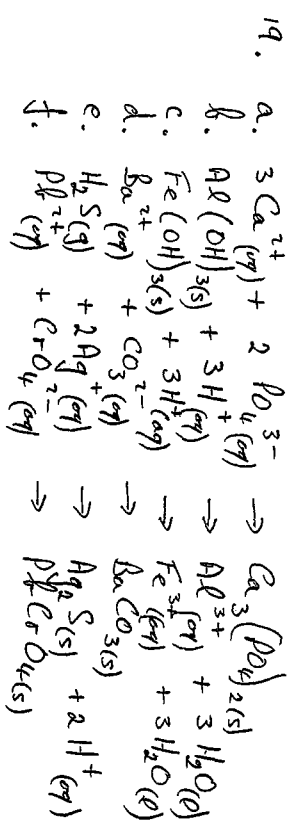 19. a. 3Ca²⁺(aq) + 2 PO₄³⁻(aq) → Ca₃(PO₄)₂(s)
b. Al(OH)₃(s) + 3H⁺(aq) → Al³⁺(aq) + 3H₂O(l)
c. Fe(OH)₃(s) + 3H⁺(aq) → Fe³⁺(aq) + 3H₂O(l)
d. Ba²⁺(aq) + CO₃²⁻(aq) → BaCO₃(s)
e. H₂S(g) + 2Ag⁺(aq) → Ag₂S(s) + 2H⁺(aq)
f. Pb²⁺(aq) + CrO₄²⁻(aq) → PbCrO₄(s)